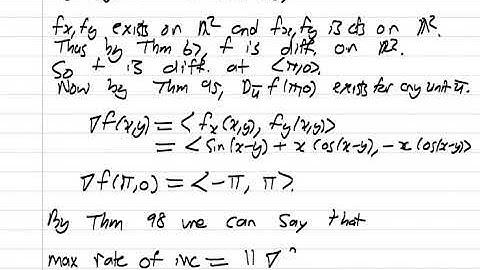 fx, fy exists on ℝ² and fx, fy is cts on ℝ².
Thus by Thm 67, f is diff. on ℝ².
So f is diff. at <π,0>.
Now by Thm 95, D_u̅ f(π,0) exists for any unit u̅.
∇f(x,y) = <fx(x,y), fy(x,y)>
= <sin(x-y) + x cos(x-y), -x cos(x-y)>
∇f(π,0) = <-π, π>.
By Thm 98 we can say that
max rate of inc = || ∇